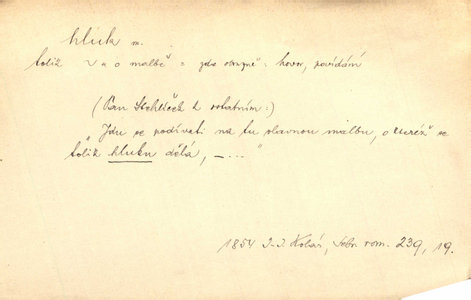 hluk m.
tolik o malbě = jde obrazně: hovor, povídání
(Pan Stehlíček k ostatním:)
„Jdu se podívati na tu slavnou malbu, o kteréž se
tolik hluku dělá, – ... "
1854 J. J. Kolár, Sebr. rom. 239, 19.